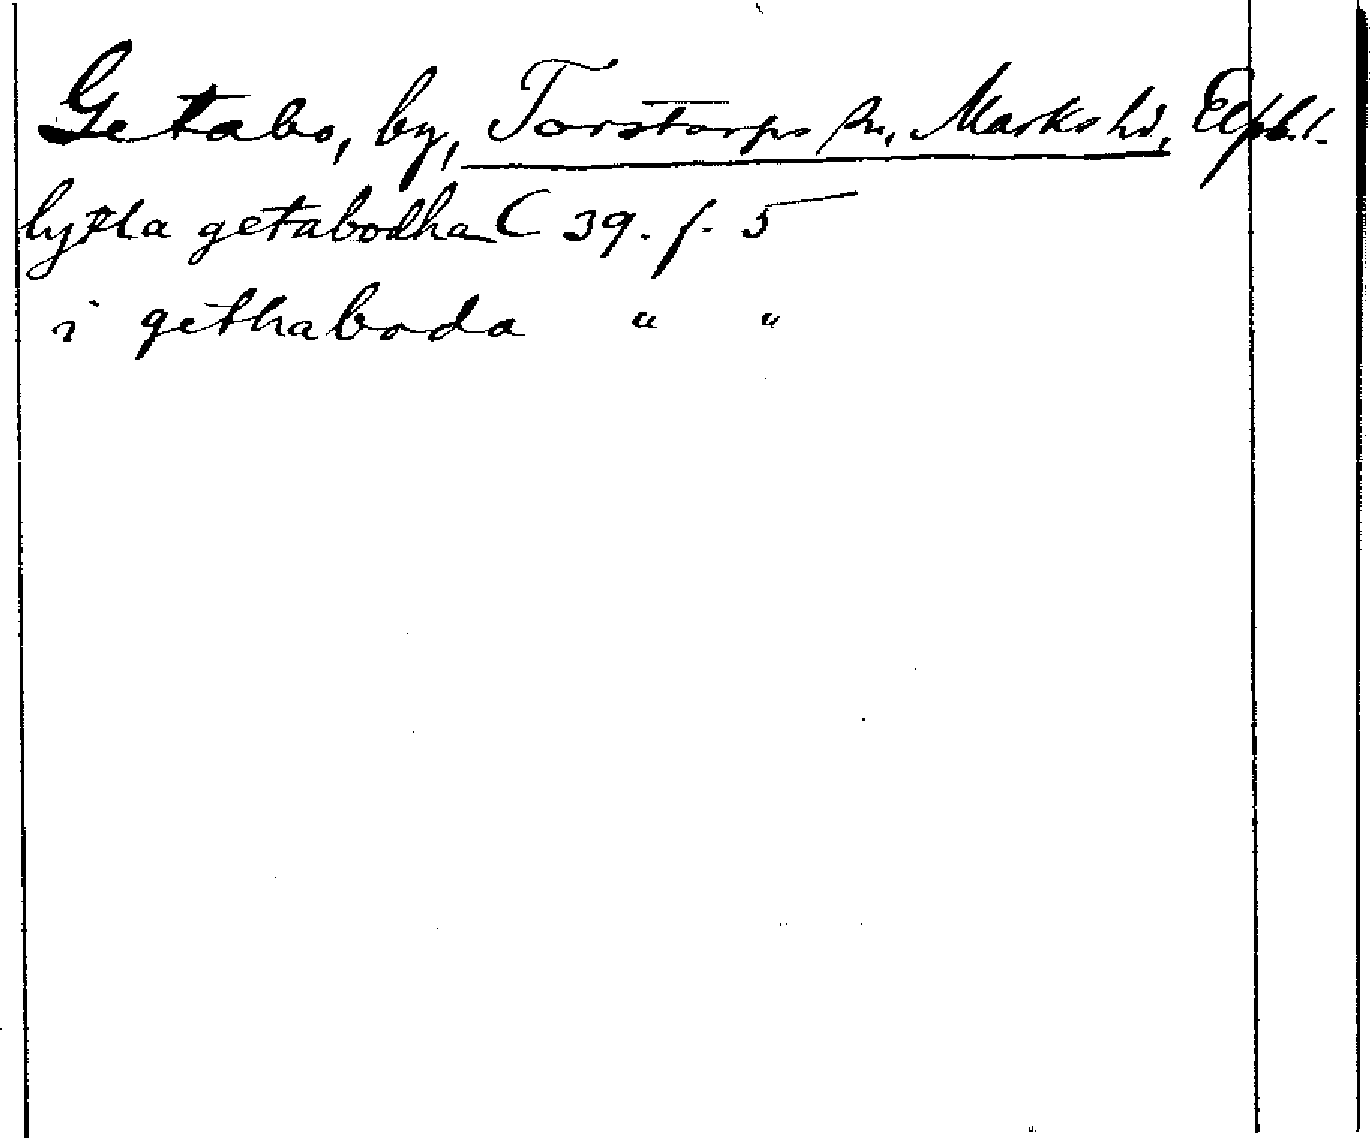 Getabo, by, Torstorps sn, Marks hd, Elfsb. l.
lytla getabodha C 39. f. 5
i gethaboda " "